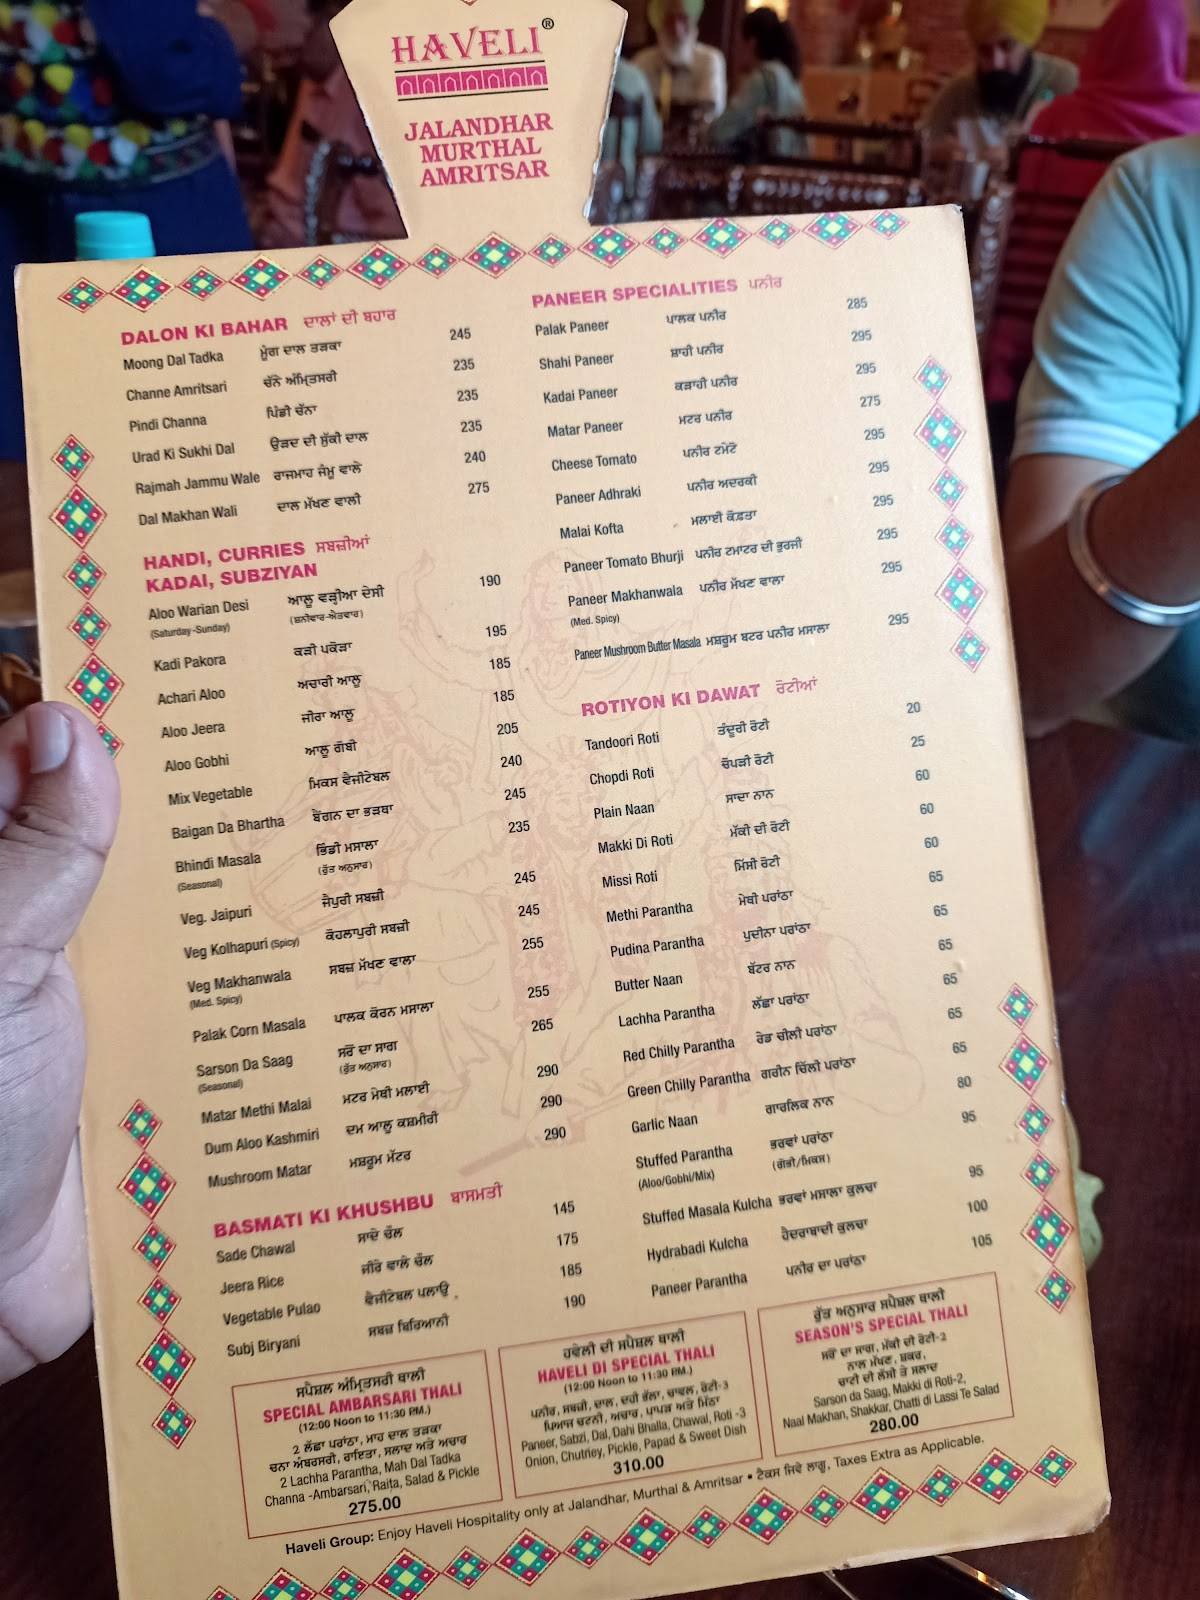 HAVELI®
JALANDHAR
MURTHAL
AMRITSAR
DALON KI BAHAR ਦਾਲਾਂ ਦੀ ਬਹਾਰ
Moong Dal Tadka ਮੂੰਗ ਦਾਲ ਤੜਕਾ 245
Channe Amritsari ਚੰਨੇ ਅੰਮ੍ਰਿਤਸਰੀ 235
Pindi Channa ਪਿੰਡੀ ਚੰਨਾ 235
Urad Ki Sukhi Dal ਉੜਦ ਦੀ ਸੁੱਕੀ ਦਾਲ 235
Rajmah Jammu Wale ਰਾਜਮਾਹ ਜੰਮੂ ਵਾਲੇ 240
Dal Makhan Wali ਦਾਲ ਮੱਖਣ ਵਾਲੀ 275
HANDI, CURRIES ਸਬਜ਼ੀਆਂ
KADAI, SUBZIYAN
Aloo Warian Desi ਆਲੂ ਵੜ੍ਹੀਆ ਦੇਸੀ 190
(Saturday-Sunday) (ਸ਼ਨੀਵਾਰ-ਐਤਵਾਰ)
Kadi Pakora ਕੜੀ ਪਕੌੜਾ 195
Achari Aloo ਅਚਾਰੀ ਆਲੂ 185
Aloo Jeera ਜੀਰਾ ਆਲੂ 185
Aloo Gobhi ਆਲੂ ਗੋਬੀ 205
Mix Vegetable ਮਿਕਸ ਵੈਜੀਟੇਬਲ 240
Baigan Da Bhartha ਬੈਂਗਨ ਦਾ ਭੜਥਾ 245
Bhindi Masala ਭਿੰਡੀ ਮਸਾਲਾ 235
(Seasonal) (ਰੁੱਤ ਅਨੁਸਾਰ)
Veg. Jaipuri ਜੈਪੁਰੀ ਸਬਜ਼ੀ 245
Veg Kolhapuri (Spicy) ਕੋਹਲਾਪੁਰੀ ਸਬਜ਼ੀ 245
Veg Makhanwala ਸਬਜ਼ ਮੱਖਣ ਵਾਲਾ 255
(Med. Spicy)
Palak Corn Masala ਪਾਲਕ ਕੋਰਨ ਮਸਾਲਾ 255
Sarson Da Saag ਸਰੋਂ ਦਾ ਸਾਗ 265
(Seasonal) (ਰੁੱਤ ਅਨੁਸਾਰ)
Matar Methi Malai ਮਟਰ ਮੇਥੀ ਮਲਾਈ 290
Dum Aloo Kashmiri ਦਮ ਆਲੂ ਕਸ਼ਮੀਰੀ 290
Mushroom Matar ਮਸ਼ਰੂਮ ਮੱਟਰ 290
BASMATI KI KHUSHBU ਬਾਸਮਤੀ
Sade Chawal ਸਾਦੇ ਚੌਲ 145
Jeera Rice ਜੀਰੇ ਵਾਲੇ ਚੌਲ 175
Vegetable Pulao ਵੈਜੀਟੇਬਲ ਪਲਾਉ 185
Subj Biryani ਸਬਜ਼ ਬਿਰਿਆਨੀ 190
PANEER SPECIALITIES ਪਨੀਰ
Palak Paneer ਪਾਲਕ ਪਨੀਰ 285
Shahi Paneer ਸ਼ਾਹੀ ਪਨੀਰ 295
Kadai Paneer ਕੜਾਹੀ ਪਨੀਰ 295
Matar Paneer ਮਟਰ ਪਨੀਰ 275
Cheese Tomato ਪਨੀਰ ਟਮੇਟੋ 295
Paneer Adhraki ਪਨੀਰ ਅਦਰਕੀ 295
Malai Kofta ਮਲਾਈ ਕੋਫ਼ਤਾ 295
Paneer Tomato Bhurji ਪਨੀਰ ਟਮਾਟਰ ਦੀ ਭੁਰਜੀ 295
Paneer Makhanwala ਪਨੀਰ ਮੱਖਣ ਵਾਲਾ 295
(Med. Spicy)
Paneer Mushroom Butter Masala ਮਸ਼ਰੂਮ ਬਟਰ ਪਨੀਰ ਮਸਾਲਾ 295
ROTIYON KI DAWAT ਰੋਟੀਆਂ
Tandoori Roti ਤੰਦੂਰੀ ਰੋਟੀ 20
Chopdi Roti ਚੋਪੜੀ ਰੋਟੀ 25
Plain Naan ਸਾਦਾ ਨਾਨ 60
Makki Di Roti ਮੱਕੀ ਦੀ ਰੋਟੀ 60
Missi Roti ਮਿੱਸੀ ਰੋਟੀ 60
Methi Parantha ਮੇਥੀ ਪਰਾਂਠਾ 65
Pudina Parantha ਪੁਦੀਨਾ ਪਰਾਂਠਾ 65
Butter Naan ਬੱਟਰ ਨਾਨ 65
Lachha Parantha ਲੱਛਾ ਪਰਾਂਠਾ 65
Red Chilly Parantha ਰੇਡ ਚੀਲੀ ਪਰਾਂਠਾ 65
Green Chilly Parantha ਗਰੀਨ ਚਿੱਲੀ ਪਰਾਂਠਾ 65
Garlic Naan ਗਾਰਲਿਕ ਨਾਨ 80
Stuffed Parantha ਭਰਵਾਂ ਪਰਾਂਠਾ 95
(Aloo/Gobhi/Mix) (ਗੋਭੀ/ਮਿਕਸ)
Stuffed Masala Kulcha ਭਰਵਾਂ ਮਸਾਲਾ ਕੁਲਚਾ 95
Hydrabadi Kulcha ਹੈਦਰਾਬਾਦੀ ਕੁਲਚਾ 100
Paneer Parantha ਪਨੀਰ ਦਾ ਪਰਾਂਠਾ 105
ਸਪੈਸ਼ਲ ਅੰਮ੍ਰਿਤਸਰੀ ਥਾਲੀ
SPECIAL AMBARSARI THALI
(12:00 Noon to 11:30 PM.)
2 ਲੱਛਾ ਪਰਾਂਠਾ, ਮਾਹ ਦਾਲ ਤੜਕਾ
ਚਨਾ ਅੰਬਰਸਰੀ, ਰਾਇਤਾ, ਸਲਾਦ ਅਤੇ ਅਚਾਰ
2 Lachha Parantha, Mah Dal Tadka
Channa -Ambarsari, Raita, Salad & Pickle
275.00
ਹਵੇਲੀ ਦੀ ਸਪੈਸ਼ਲ ਥਾਲੀ
HAVELI DI SPECIAL THALI
(12:00 Noon to 11:30 PM.)
ਪਨੀਰ, ਸਬਜ਼ੀ, ਦਾਲ, ਦਹੀ ਭੱਲਾ, ਚਾਵਲ, ਰੋਟੀ-3
ਪਿਆਜ ਚਟਨੀ, ਅਚਾਰ, ਪਾਪੜ ਅਤੇ ਮਿੱਠਾ
Paneer, Sabzi, Dal, Dahi Bhalla, Chawal, Roti -3
Onion, Chutney, Pickle, Papad & Sweet Dish
310.00
ਰੁੱਤ ਅਨੁਸਾਰ ਸਪੈਸ਼ਲ ਥਾਲੀ
SEASON'S SPECIAL THALI
ਸਰੋਂ ਦਾ ਸਾਗ, ਮੱਕੀ ਦੀ ਰੋਟੀ-2
ਨਾਲ ਮੱਖਣ, ਸ਼ਕਰ,
ਚਾਟੀ ਦੀ ਲੱਸੀ ਤੇ ਸਲਾਦ
Sarson da Saag, Makki di Roti-2,
Naal Makhan, Shakkar, Chatti di Lassi Te Salad
280.00
Haveli Group: Enjoy Haveli Hospitality only at Jalandhar, Murthal & Amritsar • ਟੈਕਸ ਜਿਵੇ ਲਾਗੂ, Taxes Extra as Applicable.